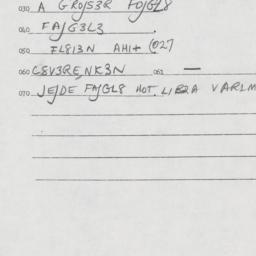 030 A GROJS3R FOJGL8
040 FAJG3L3
050 FL8I3N AHI+ @027
060 G8V3RE,NK3N 062 —
070 JEJDE FAJGL8 HOT LIB2A VARLM